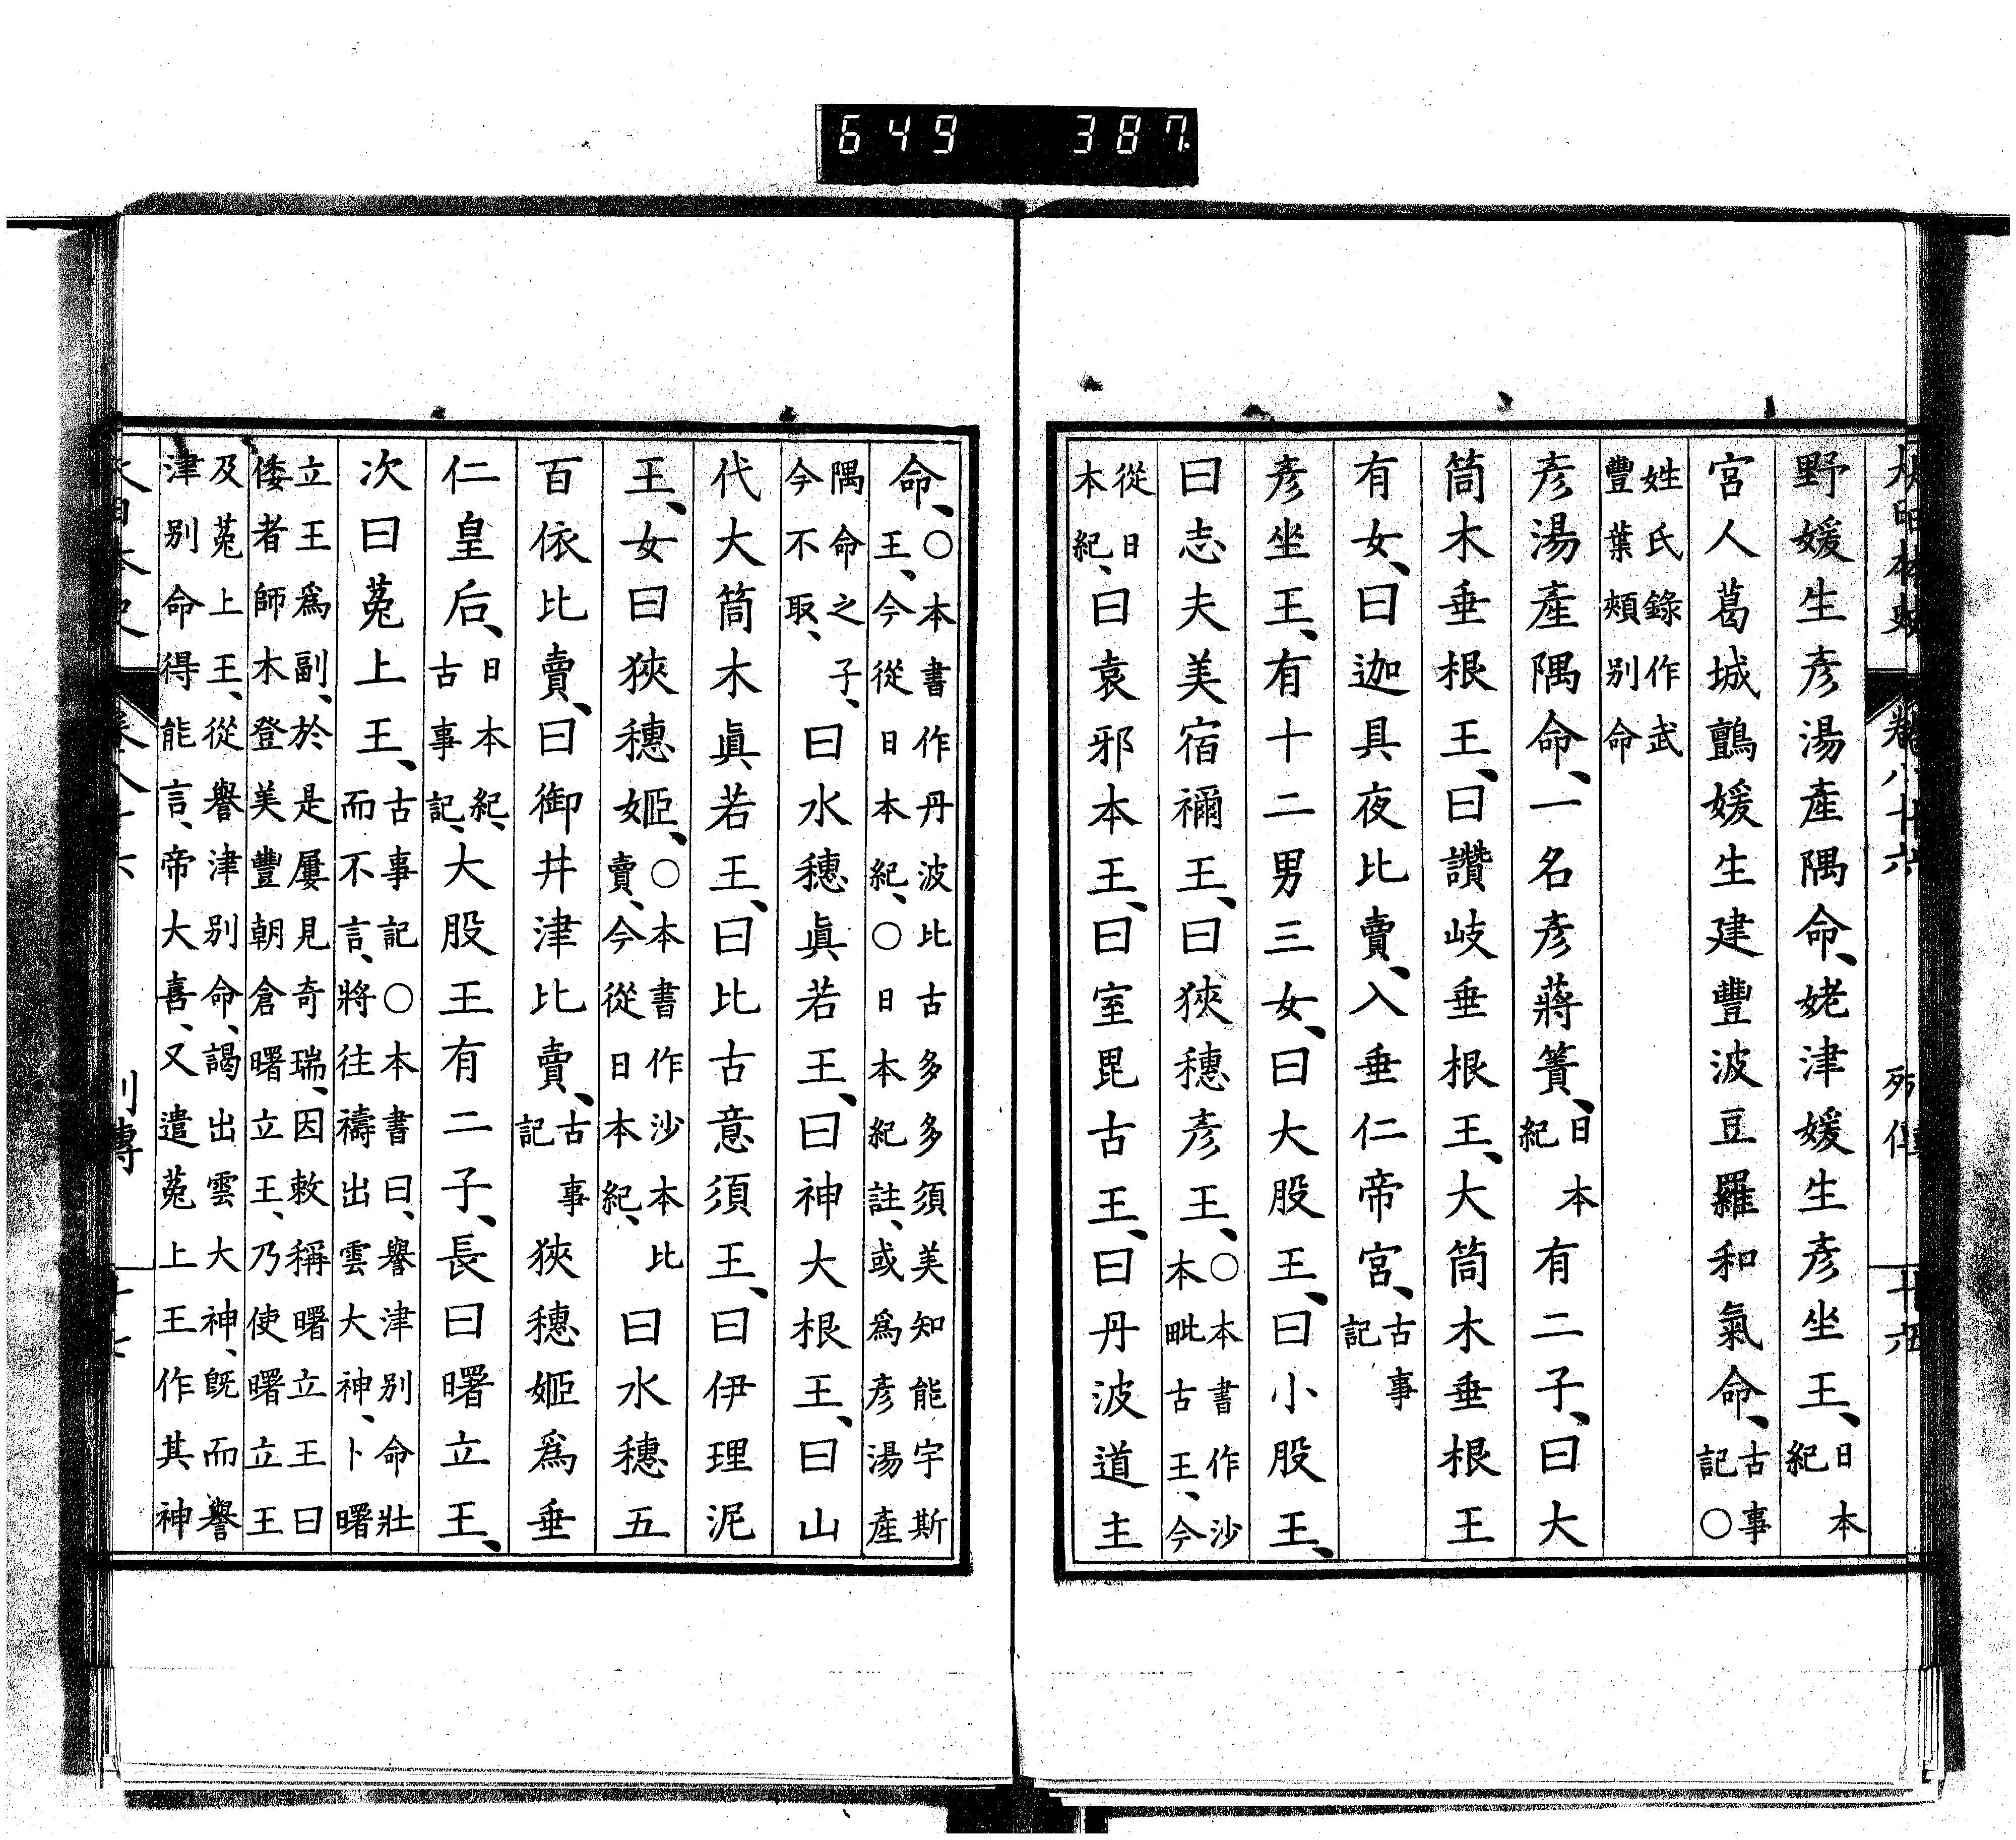 649 387
大日本史 卷八十六 列傳 十六
野媛生彥湯產隅命、姥津媛生彥坐王、日本紀
宮人葛城鸇媛生建豐波豆羅和氣命、古事記○
姓氏錄作武豐葉頰別命
彥湯產隅命、一名彥蔣簀、日本紀有二子、曰大
筒木垂根王、曰讚岐垂根王、大筒木垂根王
有女、曰迦具夜比賣、入垂仁帝宮、古事記
彥坐王、有十二男三女、曰大股王、曰小股王、
曰志夫美宿禰王、曰狹穗彥王、○本書作沙本毗古王、今
從日本紀、曰袁邪本王、曰室毘古王、曰丹波道主
命、○本書作丹波比古多多須美知能宇斯王、今從日本紀、○日本紀註、或爲彥湯產
隅命之子、今不取、曰水穗眞若王、曰神大根王、曰山
代大筒木眞若王、曰比古意須王、曰伊理泥
王、女曰狹穗姬、○本書作沙本比賣、今從日本紀、曰水穗五
百依比賣、曰御井津比賣、古事記狹穗姬爲垂
仁皇后、日本紀、古事記、大股王有二子、長曰曙立王、
次曰菟上王、古事記○本書曰、譽津別命壯而不言、將往禱出雲大神、卜曙
立王爲副、於是屢見奇瑞、因敕稱曙立王曰倭者師木登美豐朝倉曙立王、乃使曙立王
及菟上王、從譽津別命、謁出雲大神、旣而譽津別命得能言、帝大喜、又遣菟上王作其神
大日本史 卷八十六 列傳 十七